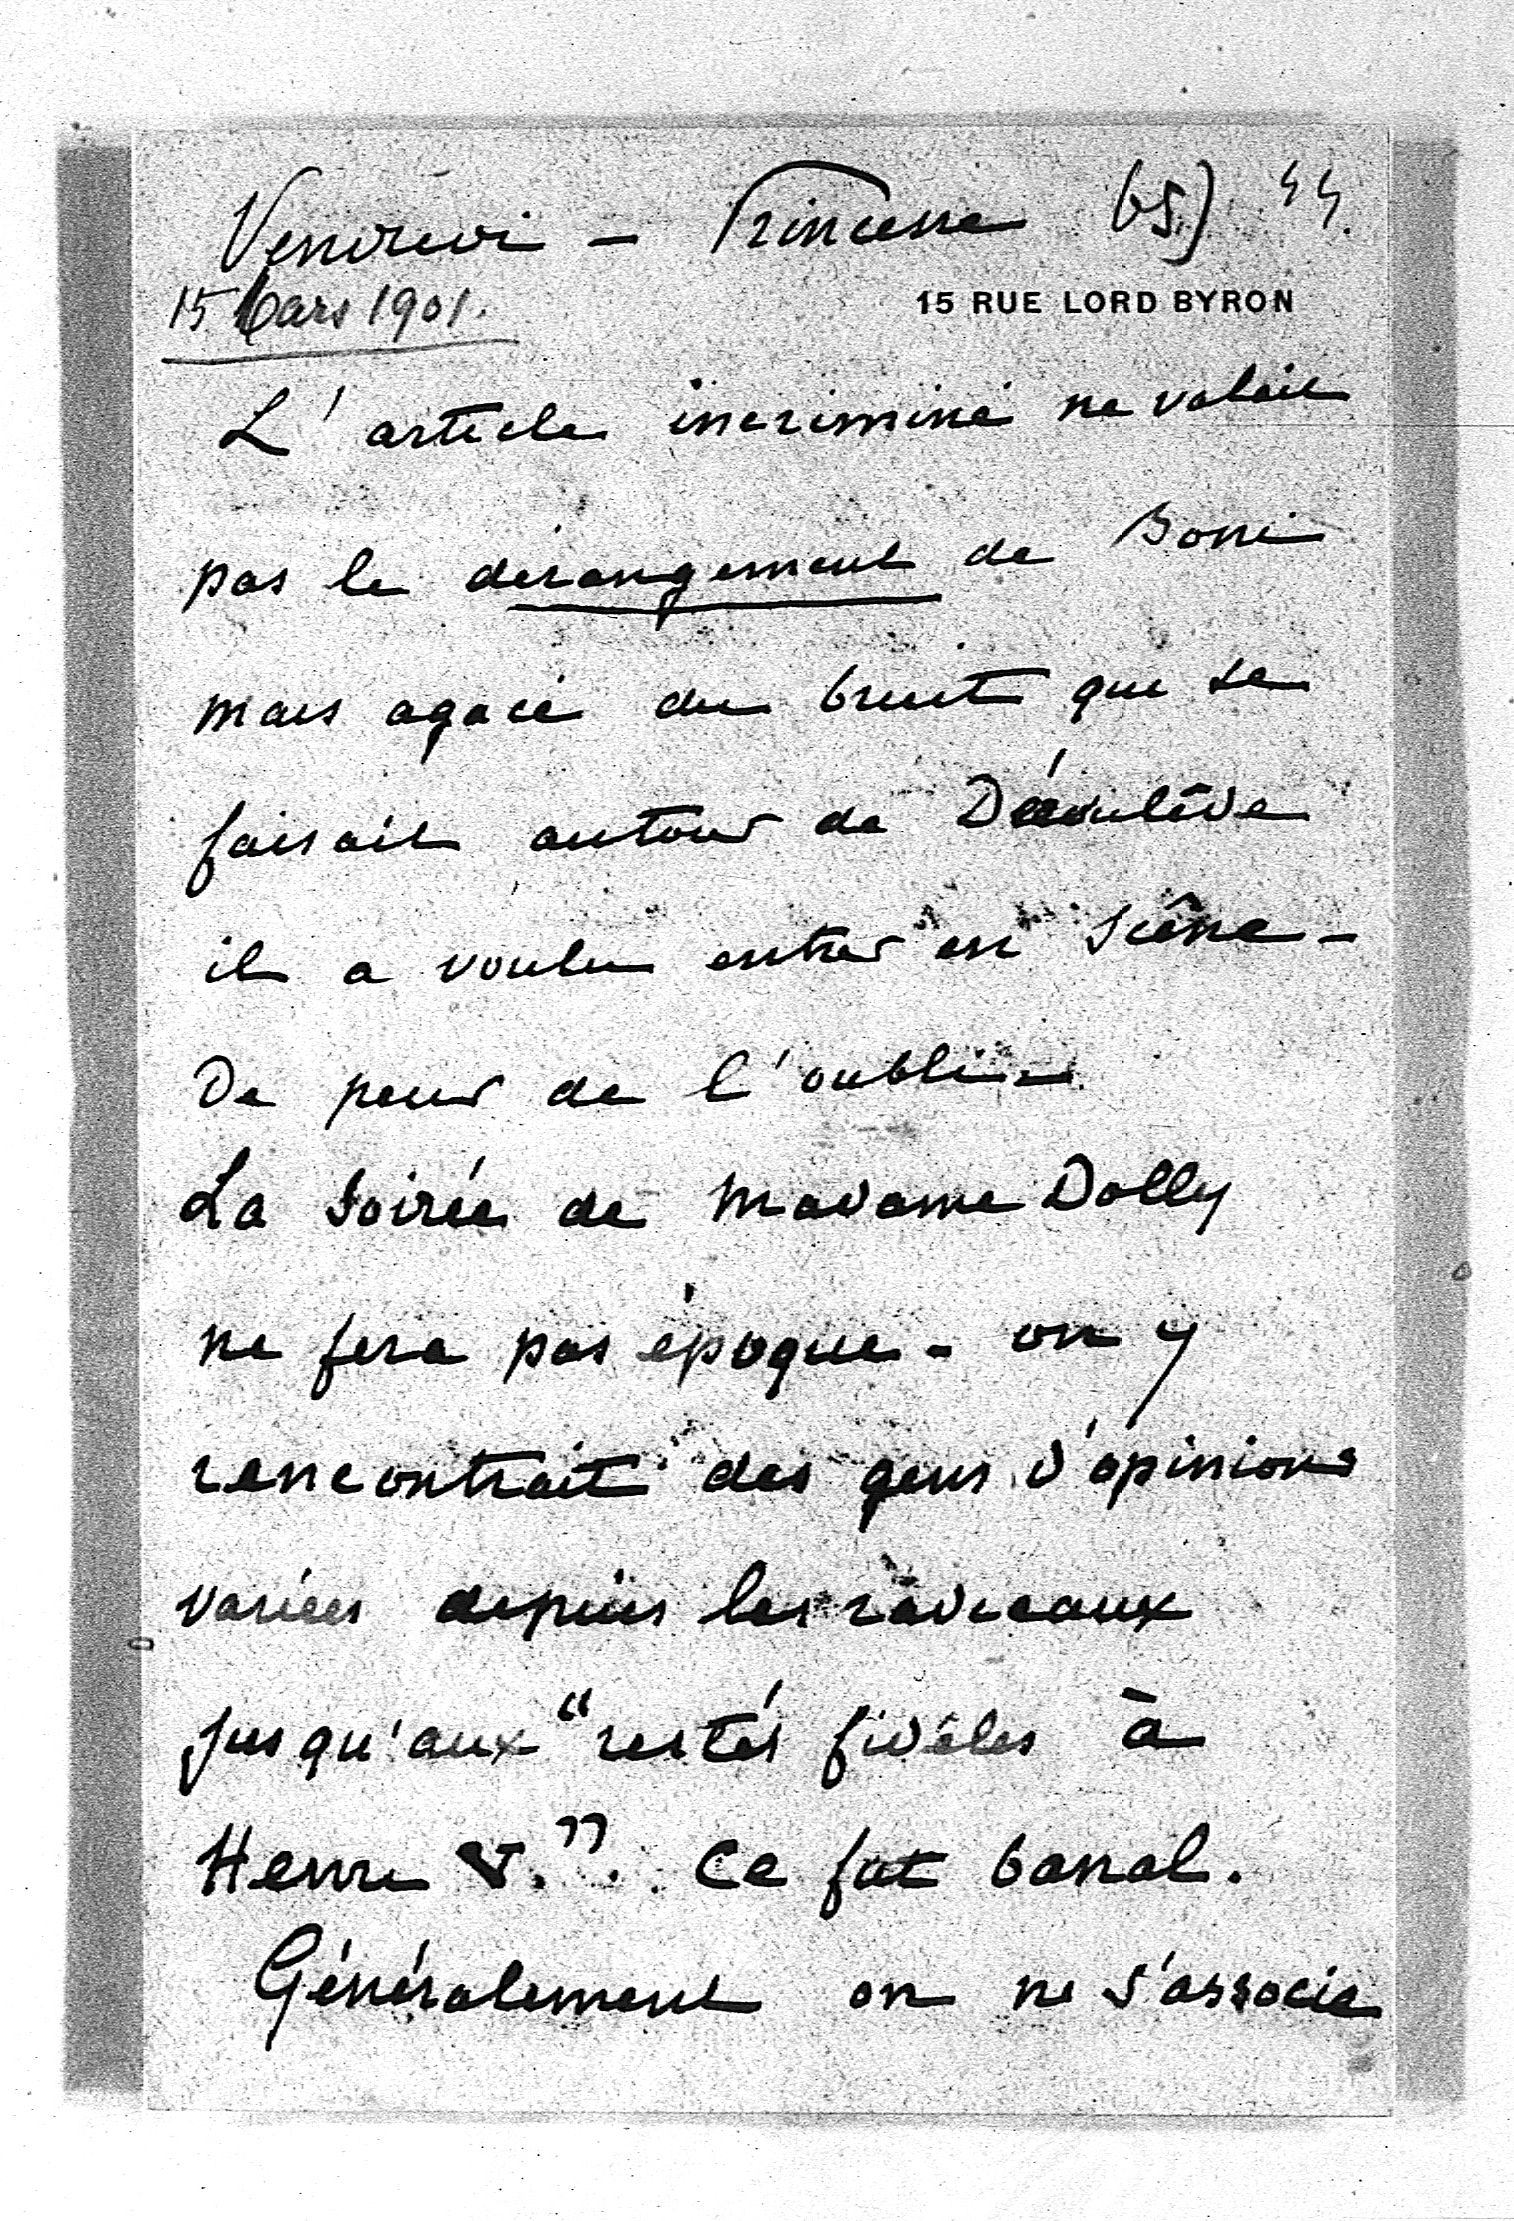 Vendredi - Princesse 65) 44.
15 Mars 1901.
15 RUE LORD BYRON
L'article incriminé ne valait
pas le dérangement de Boni
mais agacé du bruit que se
faisait autour de Déroulède
il a voulu entrer en scêne -
De peur de l'oubli -
La soirée de Madame Dolly
ne fera pas époque - on y
rencontrait des gens d'opinions
variées depuis les radicaux
jusqu'aux "restés fidèles à
Henri V.". Ce fut banal.
Généralement on ne s'associe